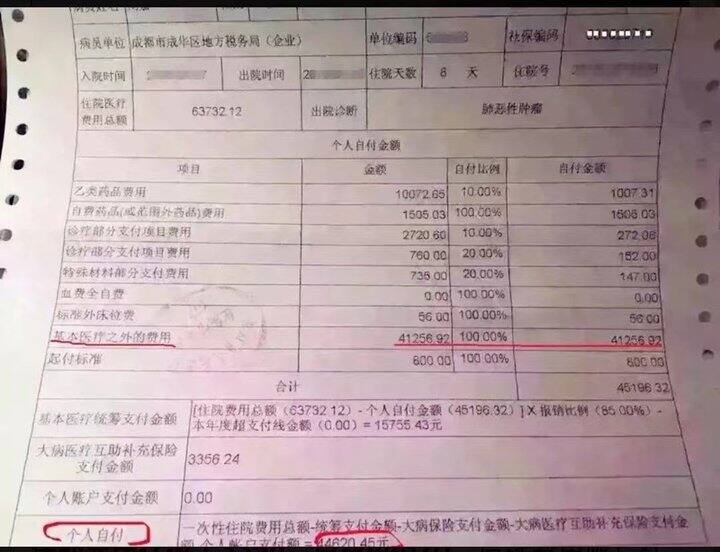 病员单位 成都市成华区地方税务局（企业） 单位编码 社保编码
入院时间 出院时间 住院天数 8 天 住院号
住院医疗费用总额 63732.12 出院诊断 肺恶性肿瘤
个人自付金额
项目 金额 自付比例 自付金额
乙类药品费用 10072.65 10.00% 1007.31
自费药品(或范围外药品)费用 1505.03 100.00% 1505.03
诊疗部分支付项目费用 2720.60 10.00% 272.06
诊疗部分支付项目费用 760.00 20.00% 152.00
特殊材料部分支付费用 735.00 20.00% 147.00
血费全自费 0.00 100.00% 0.00
标准外床位费 56.00 100.00% 56.00
基本医疗之外的费用 41256.92 100.00% 41256.92
起付标准 800.00 100.00% 800.00
合计 45196.32
基本医疗统筹支付金额 [住院费用总额(63732.12)-个人自付金额(45196.32)]X报销比例(85.00%)-
本年度超支付线金额(0.00)=15755.43元
大病医疗互助补充保险
支付金额 3356.24
个人账户支付金额 0.00
个人自付 一次性住院费用总额-统筹支付金额-大病保险支付金额-大病医疗互助补充保险支付金
额-个人帐户支付额=44620.45元